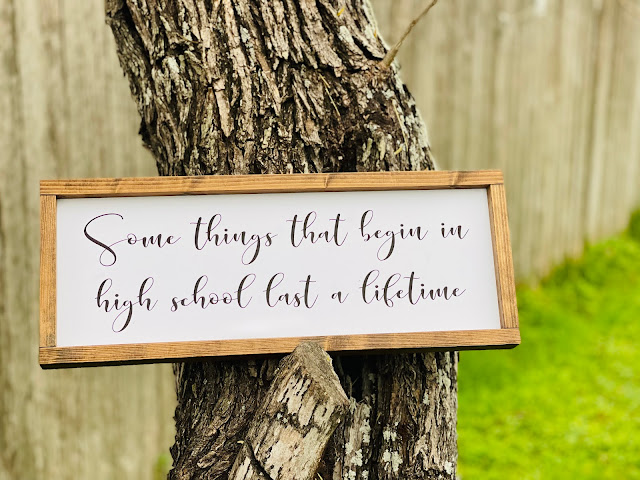 Some things that begin in
high school last a lifetime